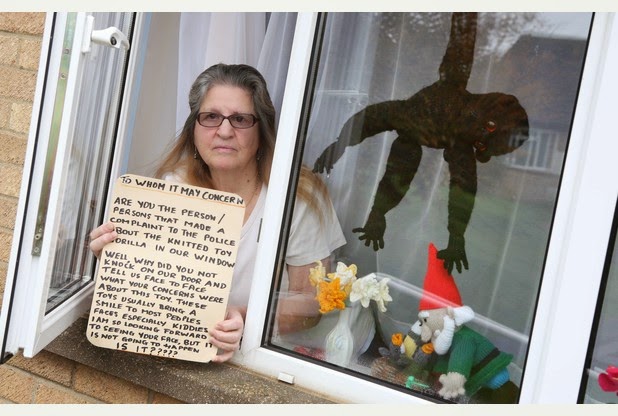 TO WHOM IT MAY CONCERN
ARE YOU THE PERSON/
PERSONS THAT MADE A
COMPLAINT TO THE POLICE
ABOUT THE KNITTED TOY
GORILLA IN OUR WINDOW
WELL, WHY DID YOU NOT
KNOCK ON OUR DOOR AND
TELL US FACE TO FACE
WHAT YOUR CONCERNS WERE
ABOUT THIS TOY. THESE
TOYS USUALLY BRING A
SMILE TO MOST PEOPLES
FACES ESPECIALLY KIDDIES
IAM SO LOOKING FORWARD
TO SEEING YOUR FACE, BUT IT
IS NOT GOING TO HAPPEN
IS IT?????